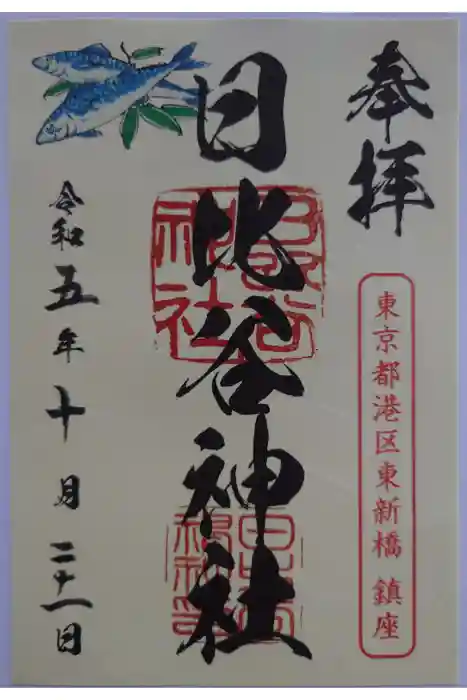 奉拝
東京都港区東新橋 鎮座
日比谷神社
令和五年十月二十一日